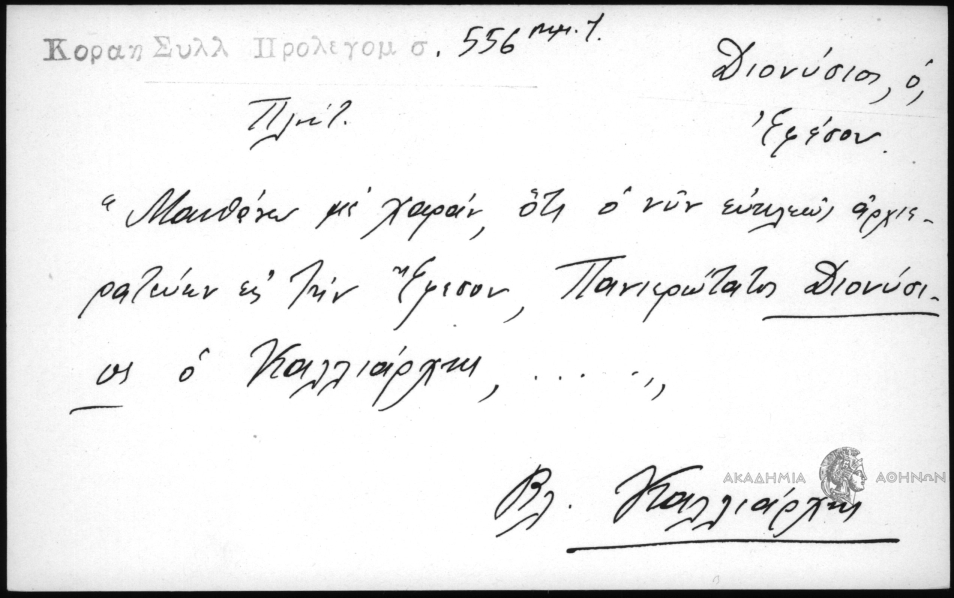 Κοραη Συλλ Προλεγομ σ. 556 σημ. 1.
Διονύσιος, ὁ,
Ἐφέσου.
Πλούτ.
"Μανθάνω μὲ χαράν, ὅτι ὁ νῦν εὐκλεῶς ἀρχιε-
ρατεύων εἰς τὴν Ἔφεσον, Πανιερώτατος Διονύσι-
ος ὁ Καλλιάρχης, ....."
Βλ. Καλλιάρχης
ΑΚΑΔΗΜΙΑ ΑΘΗΝΩΝ